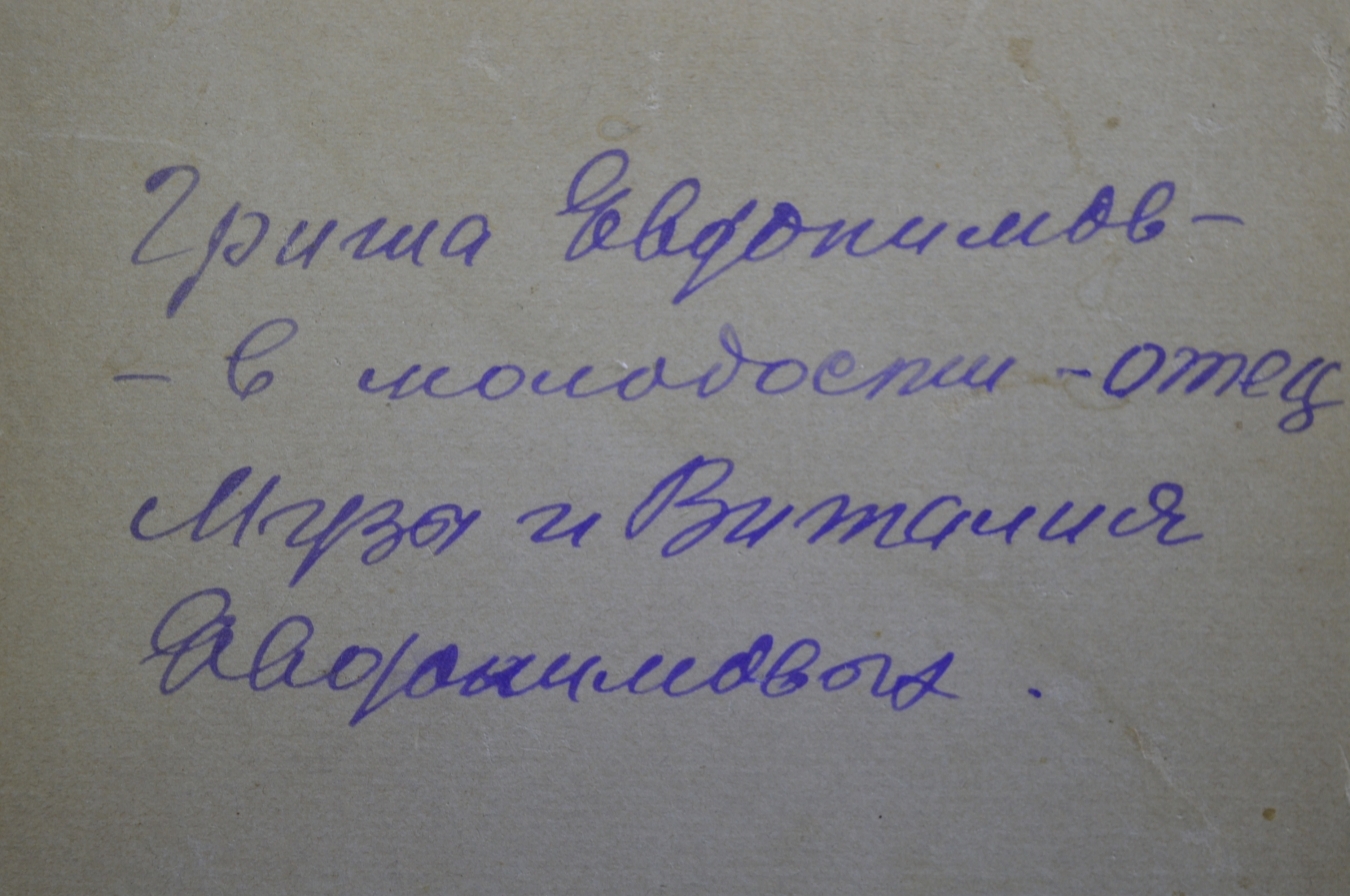 Гриша Евдокимов -
- в молодости - отец
Музы и Виталия
Евдокимовых.